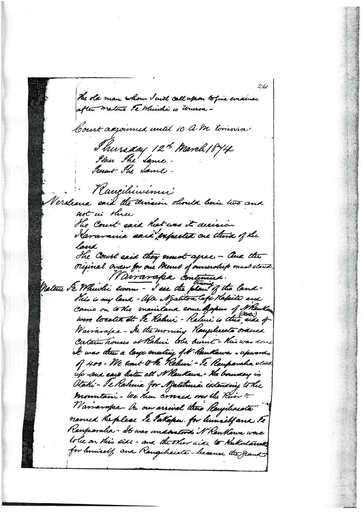 241
The old man whom I will call upon to give evidence
after Matene Te Whiwhi is Unuroa -
Court adjourned until 10 A.M. tomorrow
Thursday 12th March 1874
Place The Same -
Present The Same -
Rangihiwinui
said the division should be in two and
not in three
The Court said that was its decision
said expected one third of the
land
The Court said they must agree - And the
original order for one Memo of ownership must stand.
Wairarapa continued.
Matene Te Whiwhi sworn - I see the plan of the land -
this is my land - After Ngatitoa left Kapiti and
came on to the mainland some of N'Raukawa
were located at Te Kahui - Kahui is this side of
Wairarapa - In the morning Rangihaeata ordered
certain houses at Kahui to be burnt - this was done
It was then a large meeting of N'Raukawa - upwards
of 400 - We went to Te Kahui - Te Rauparaha stood
up and said to all N'Raukawa - the boundary is
Otaki - Te Kahui for Ngatitoa extending to the
mountain - We then crossed over the River to
Wairarapa - On our arrival there Rangihaeata
named the place for himself and Te
Rauparaha - It was understood N'Raukawa were
to be on this side - and the other side to
for himself and Rangihaeata - because the